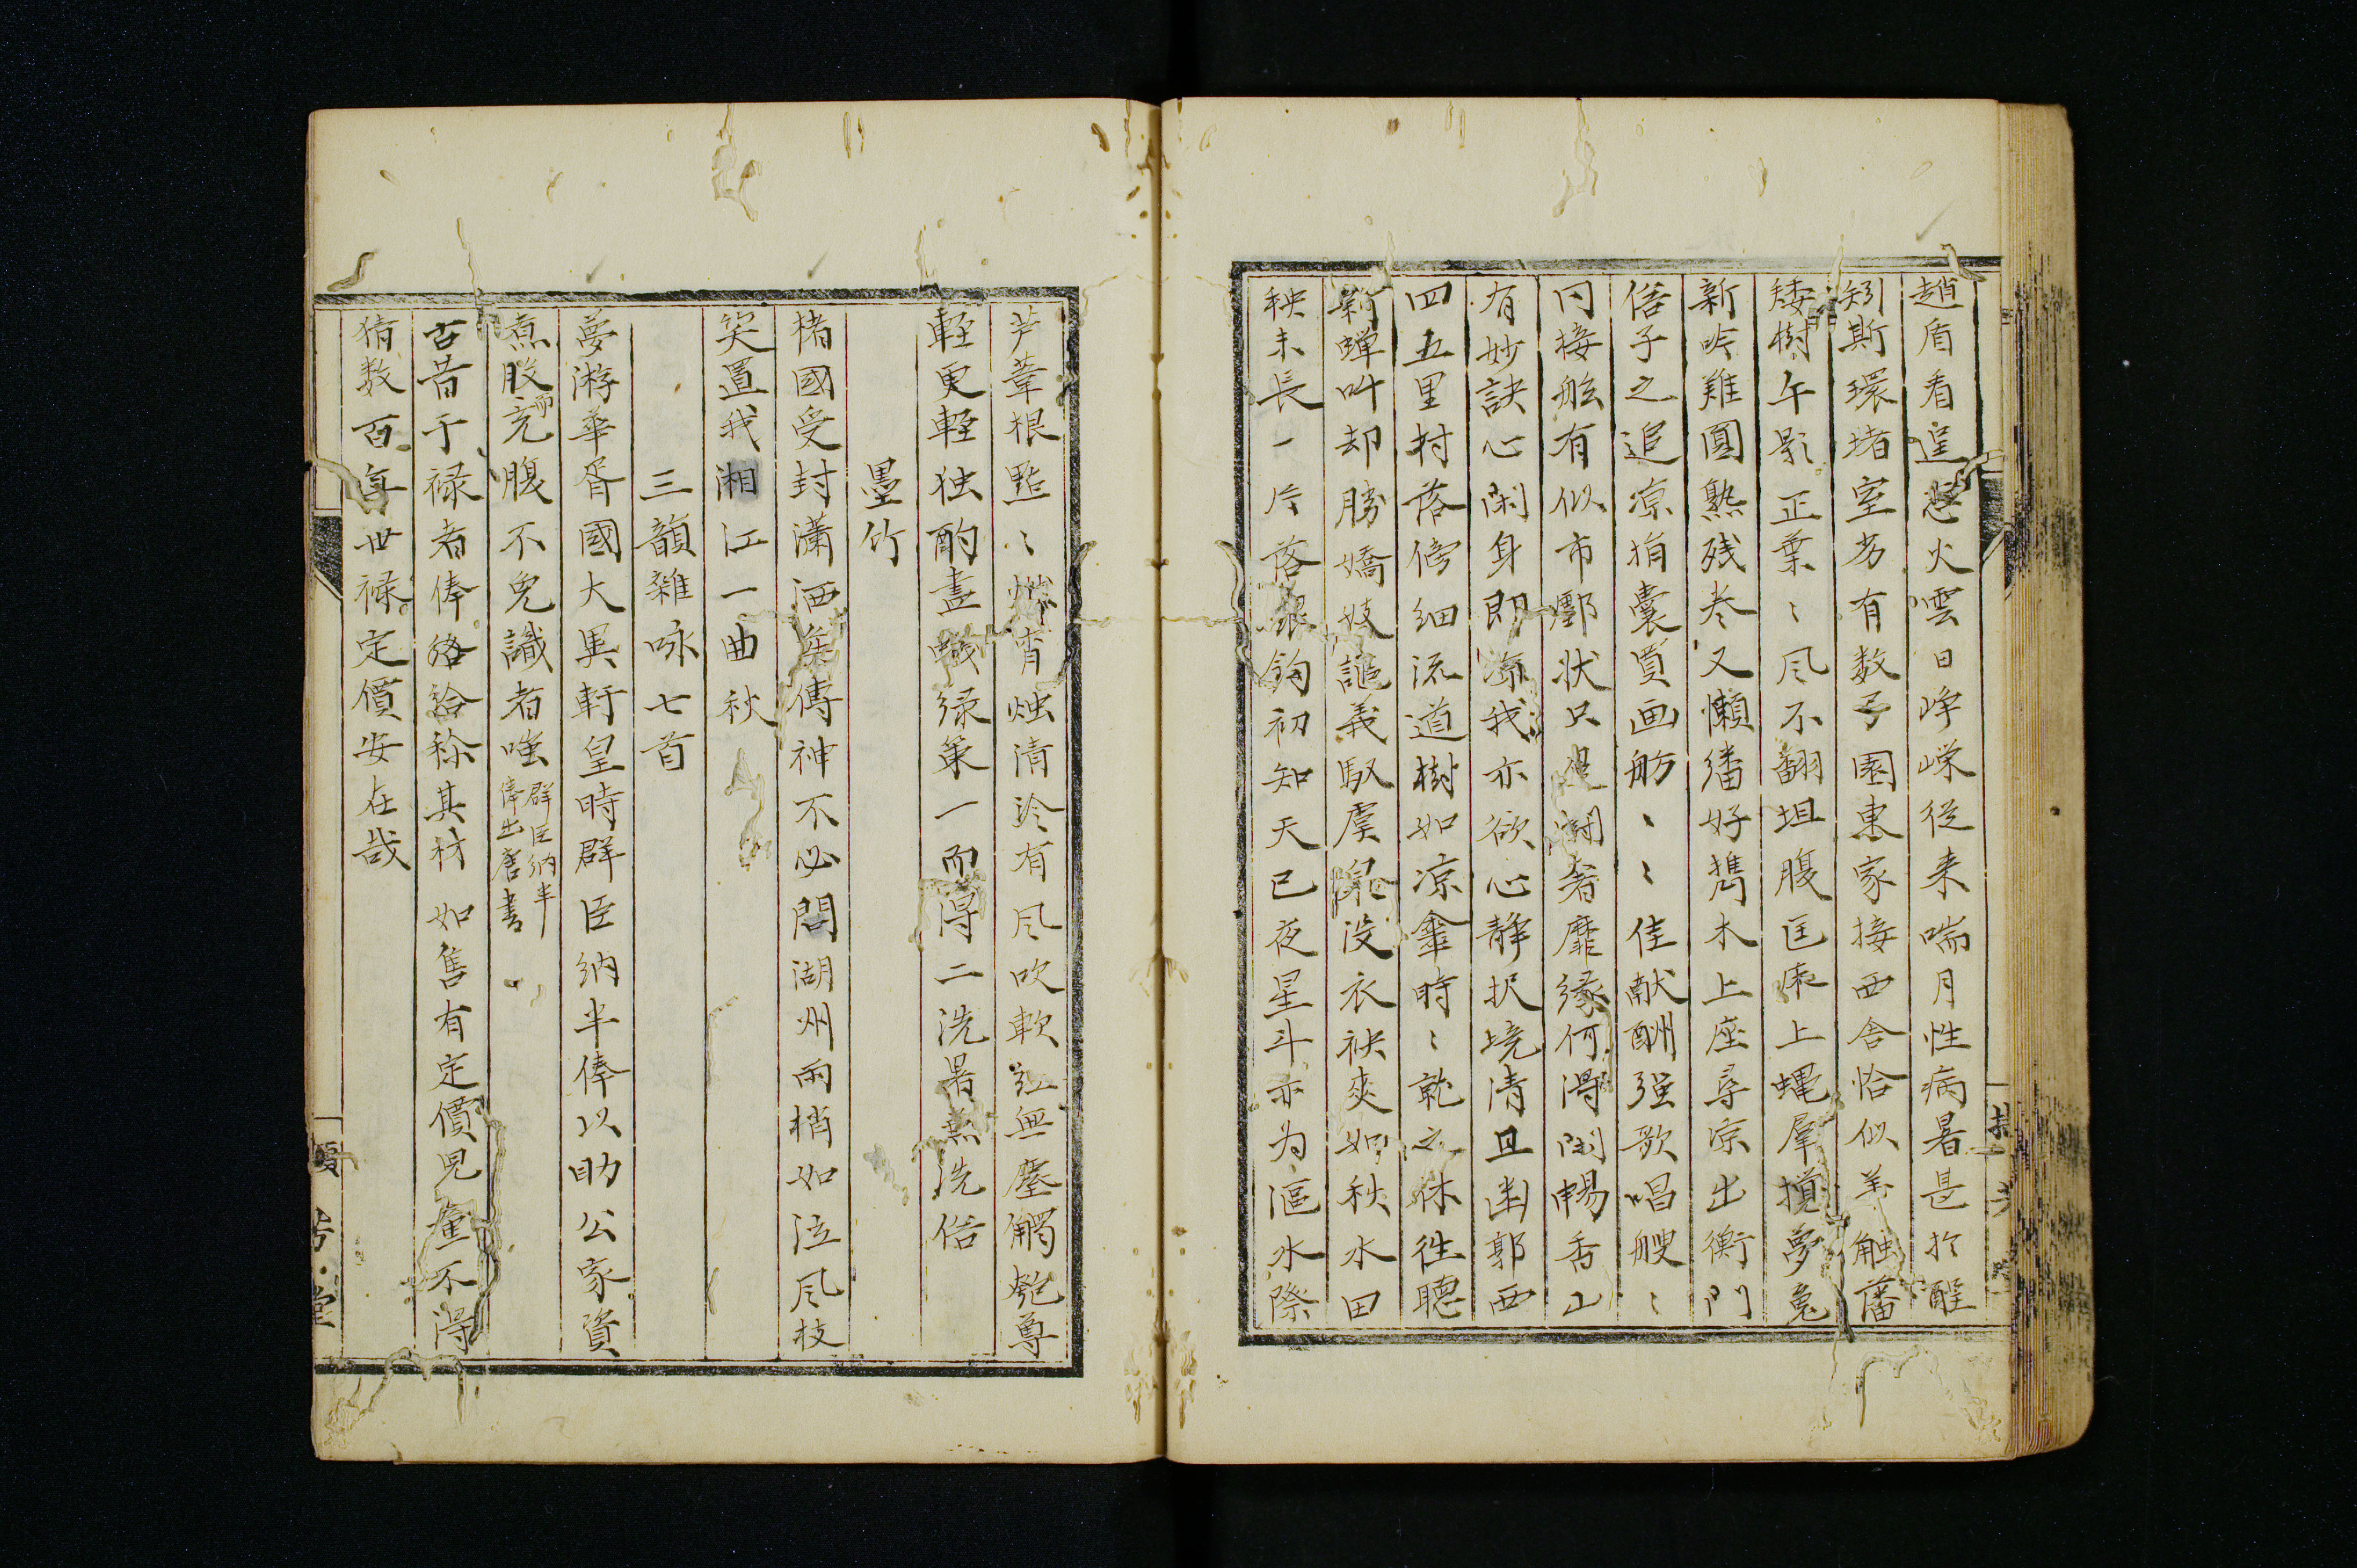 趙盾看逞怒火雲日崢嶸従来喘月性病暑甚於酲
矧斯環堵室芳有数子園東家接西舎恰似羊触藩
矮樹午影正葉〻風不翻坦腹匡床上蠅羣攪夢魂
新吟難圓熟残巻又懶繙好携木上座尋凉出衡門
俗子之追凉捐嚢買画舫〻〻佳献酬强歌唱艘〻
円接舷有似市鄽状只是闘奢靡縁何得閑暢香山
有妙訣心閑身即凉我亦欲心静択境清且幽郭西
四五里村落傍細流道樹如凉傘時〻就之休徃聴
新蟬叫却勝嬌妓謳義馭虞泉没衣袂爽如秋水田
秧未長一片落銀鈎初知天已夜星斗亦为漚水際
芦葦根點〻宵燭清泠有风吹軟红無塵觸匏尊
軽更軽独酌盡蟻緑策一而得二洗暑兼洗俗
墨竹
楮國受封潇洒矣傳神不必問湖州雨梢如泣风枝
笑置我湘江一曲秋
三韻雑咏七首
夢游華胥國大異軒皇時群臣納半俸以助公家資
煮股而充腹不免識者嗤群臣納半俸出唐書
古昔干禄者俸給称其材如售有定價児童不得
猜数百年世禄定價安在哉